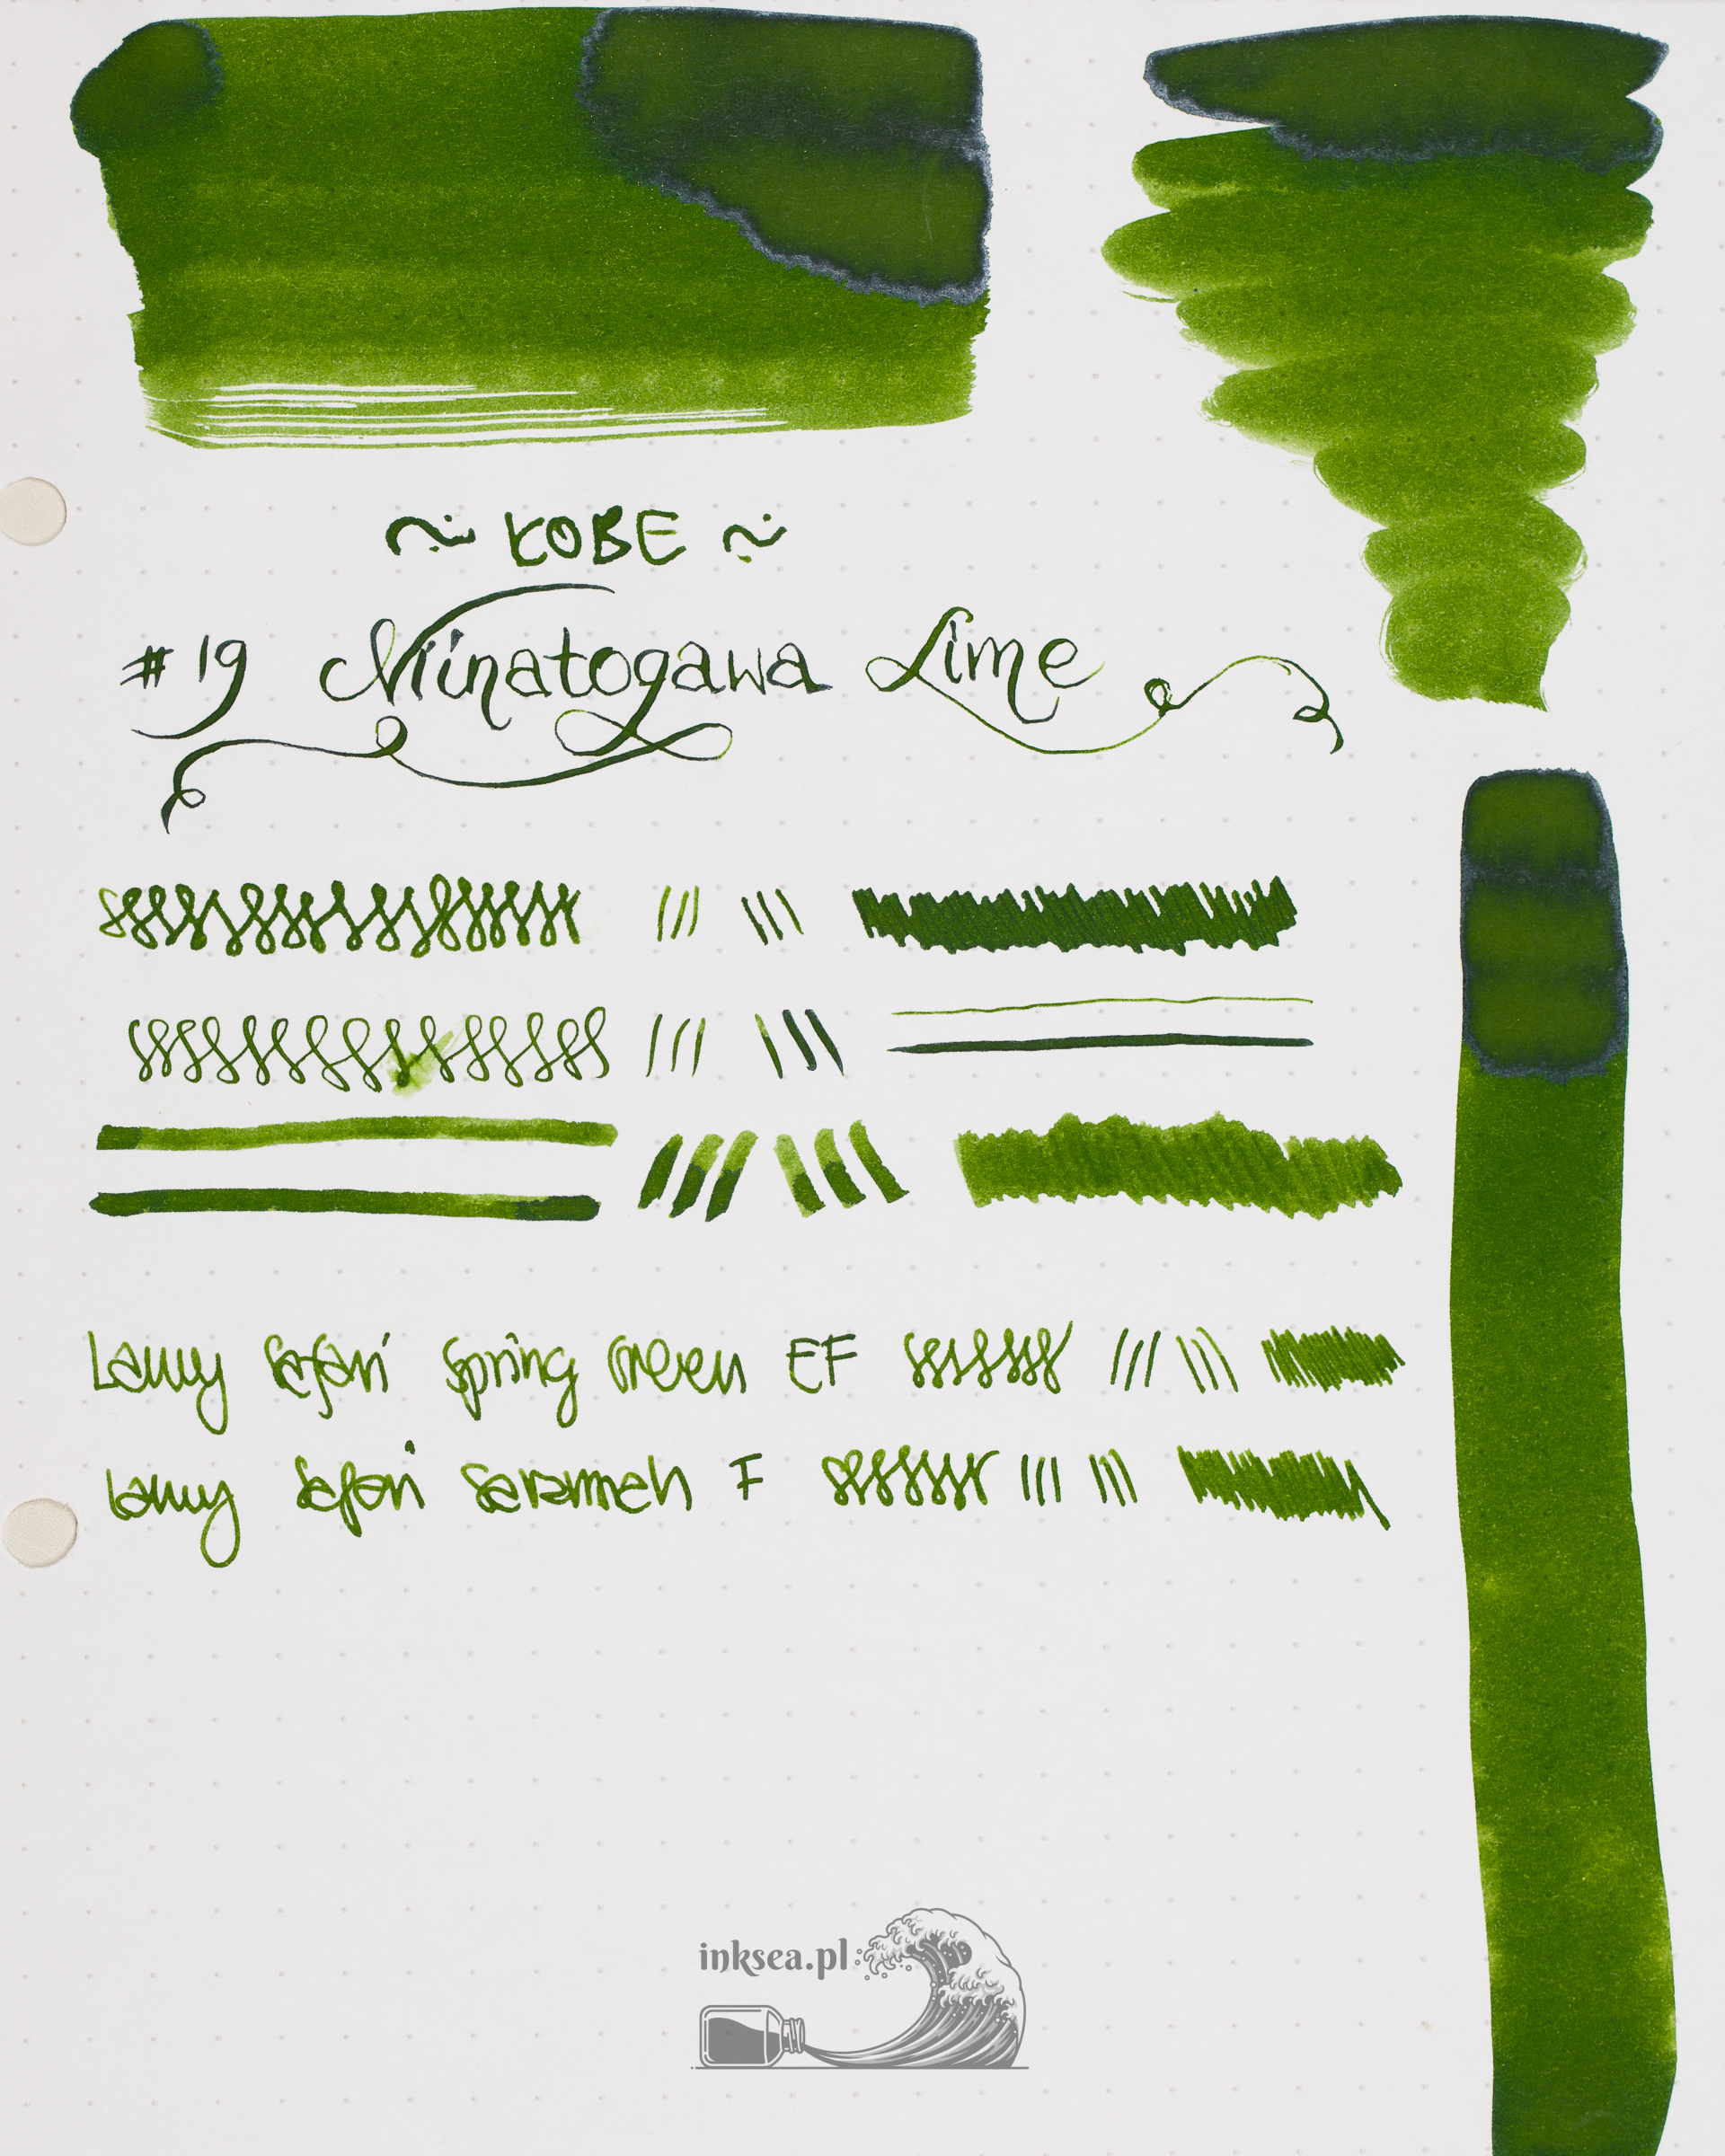 ~ KOBE ~
#19 Minatogawa Lime
Lamy Safari Spring Green EF
Lamy Safari Savannah F
inksea.pl